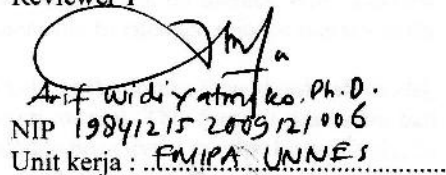 Reviewer 1
Arif Widiyatmoko, Ph.D.
NIP 19841215 200912 1 006
Unit kerja : FMIPA UNNES